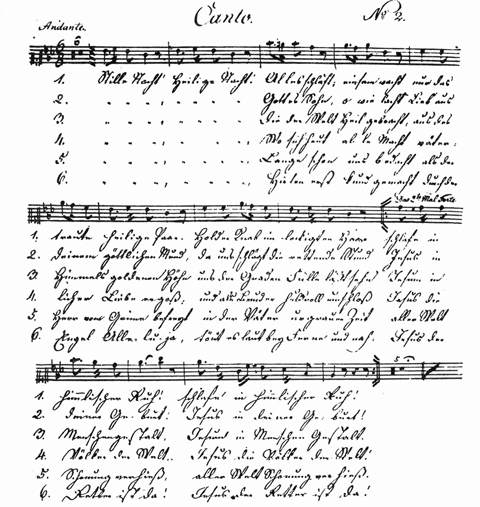 Canto. No 2.
Andante.
1. Stille Nacht! Heilige Nacht! Alles schläft; einsam wacht nur das
2. " " " " " " Gottes Sohn, o wie lacht Lieb aus
3. " " " " " " Die der Welt Heil gebracht, aus des
4. " " " " " " Wo sich heut alle Macht väter-
5. " " " " " " Lange schon uns bedacht als der
6. " " " " " " Hirten erst kund gemacht durch der
2te Mal Forte
1. traute heilige Paar. Holder Knab im lockigten Haar schlafe in
2. deinem göttlichen Mund, da uns schlägt die rettende Stund Jesus in
3. Himmels goldenen Höhn uns der Gnaden Fülle läßt sehn Jesum in
4. licher Liebe ergoß; und als Bruder huldvoll umschloß Jesus die
5. Herr vom Grimme befreyt in der Väter urgrauer Zeit aller Welt
6. Engel Alleluja, tönt es laut bey Ferne und nah. Jesus der
5
1. himmlischer Ruh! schlafe in himmlischer Ruh!
2. deiner Geburt! Jesus in deiner Geburt!
3. Menschengestalt. Jesum in Menschengestalt.
4. Völker der Welt. Jesus die Völker der Welt!
5. Schonung verhieß, aller Welt Schonung verhieß.
6. Retter ist da! Jesus der Retter ist da!